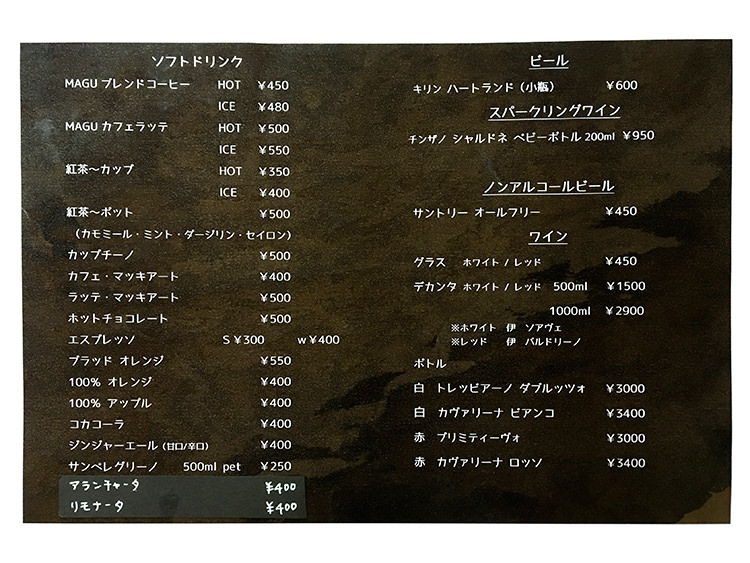 ソフトドリンク
MAGU ブレンドコーヒー HOT ¥450
ICE ¥480
MAGU カフェラッテ HOT ¥500
ICE ¥550
紅茶〜カップ HOT ¥350
ICE ¥400
紅茶〜ポット ¥500
(カモミール・ミント・ダージリン・セイロン)
カップチーノ ¥500
カフェ・マッキアート ¥400
ラッテ・マッキアート ¥500
ホットチョコレート ¥500
エスプレッソ S ¥300 w ¥400
ブラッド オレンジ ¥550
100% オレンジ ¥400
100% アップル ¥400
コカコーラ ¥400
ジンジャーエール (甘口/辛口) ¥400
サンペレグリーノ 500ml pet ¥250
アランチャータ ¥400
リモナータ ¥400
ビール
キリン ハートランド (小瓶) ¥600
スパークリングワイン
チンザノ シャルドネ ベビーボトル 200ml ¥950
ノンアルコールビール
サントリー オールフリー ¥450
ワイン
グラス ホワイト / レッド ¥450
デカンタ ホワイト / レッド 500ml ¥1500
1000ml ¥2900
※ホワイト 伊 ソアヴェ
※レッド 伊 バルドリーノ
ボトル
白 トレッビアーノ ダブルッツォ ¥3000
白 カヴァリーナ ビアンコ ¥3400
赤 プリミティーヴォ ¥3000
赤 カヴァリーナ ロッソ ¥3400